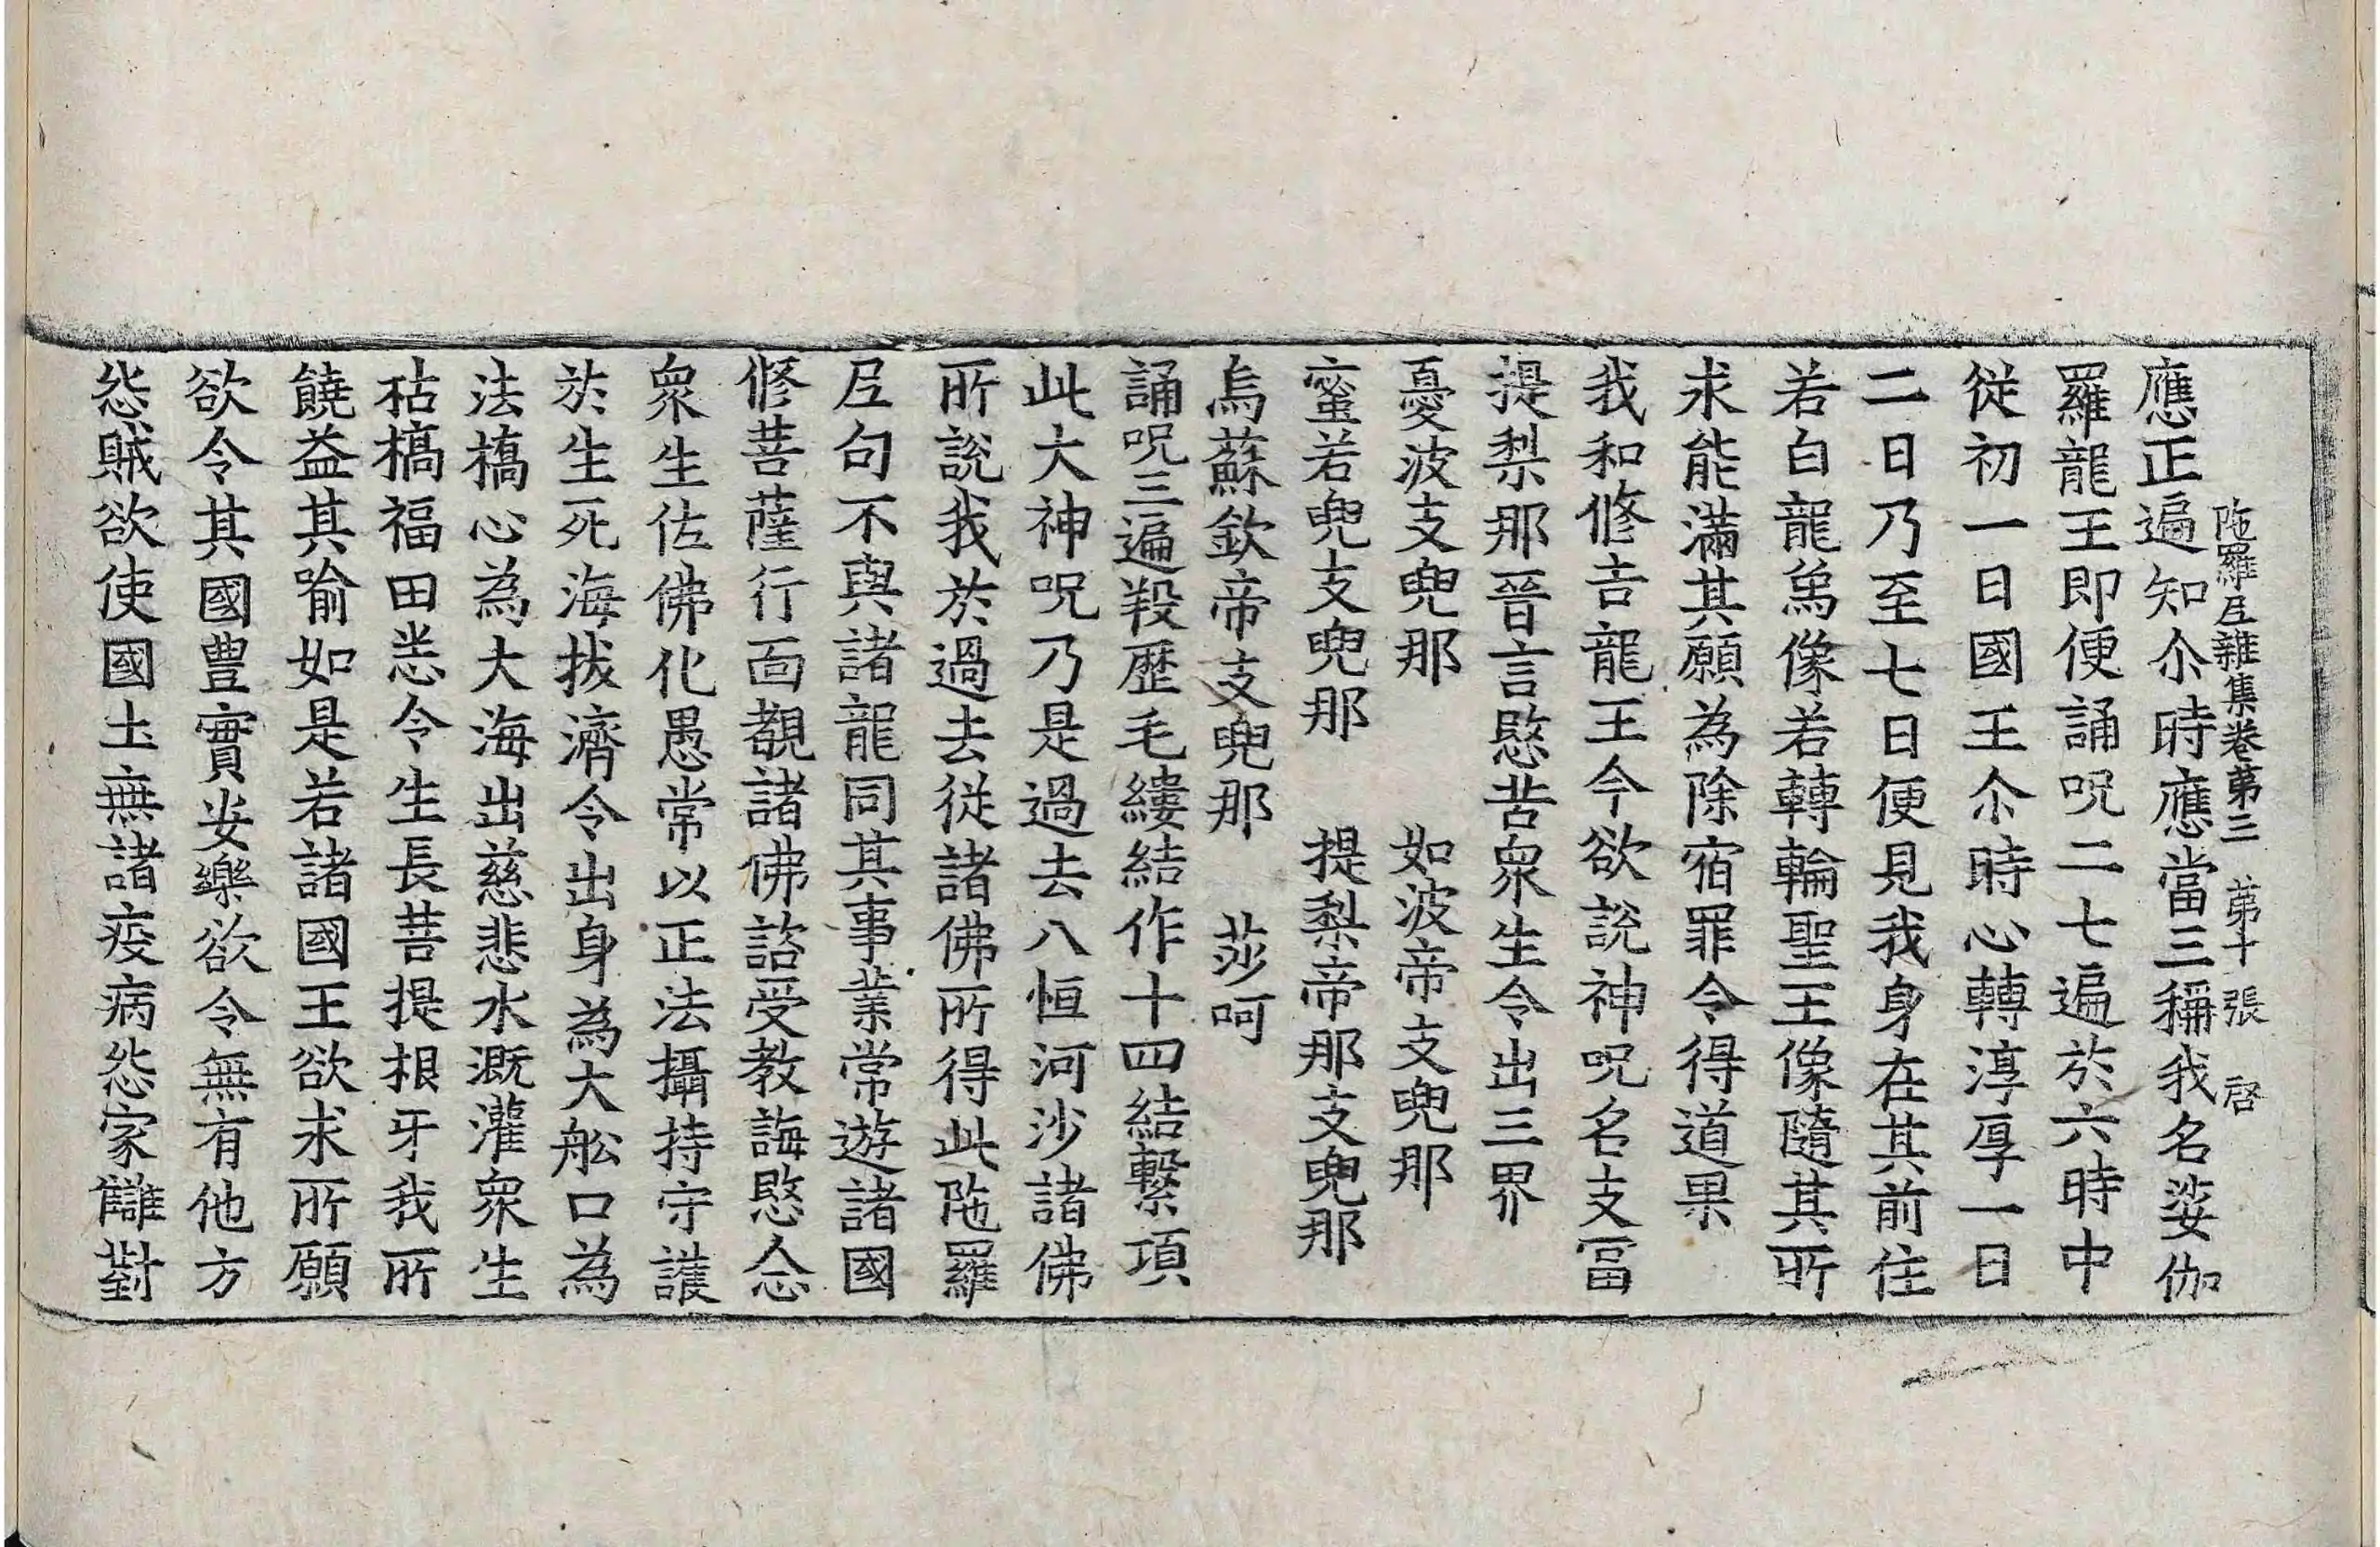 陁羅𡰱雜集卷第三　第十張　啓
應正遍知尒時應當三稱我名娑伽
羅龍王即便誦呪二七遍於六時中
從初一日國王尒時心轉淳厚一日
二日乃至七日便見我身在其前住
若白龍爲像若轉輪聖王像隨其所
求能滿其願為除宿罪令得道果
我和修吉龍王今欲說神呪名支冨
提梨那晉言愍苦衆生令出三界
憂波支兜那　如波帝支兜那
蜜若兜支兜那　提梨帝那支兜那
烏蘇欽帝支兜那　莎呵
誦呪三遍羖歷毛縷結作十四結繫項
此大神呪乃是過去八恒河沙諸佛
所說我於過去從諸佛所得此陁羅
𡰱句不與諸龍同其事業常遊諸國
修菩薩行面覩諸佛諮受教誨愍念
衆生佐佛化愚常以正法攝持守護
於生死海拔濟令出身為大舩口為
法橋心為大海出慈悲水溉灌衆生
枯槁福田悉令生長菩提根牙我所
饒益其喻如是若諸國王欲求所願
欲令其國豊實安樂欲令無有他方
怨賊欲使國土無諸疫病怨家讎對